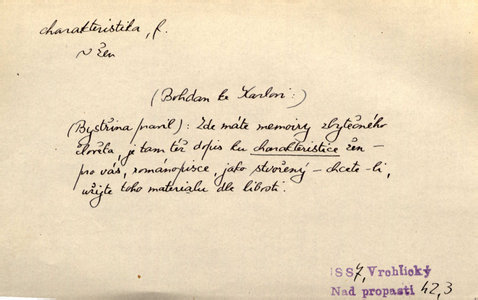 charakteristika, f.
v žen
(Bohdan ke Karlovi:)
(Bystřina pravil): Zde máte memoiry zbytečného
člověka, je tam též dopis ku charakteristice žen –
pro vás, románopisce, jako stvořený – chcete-li,
užijte toho materialu dle libosti.
SS7, Vrchlický
Nad propastí 42,3